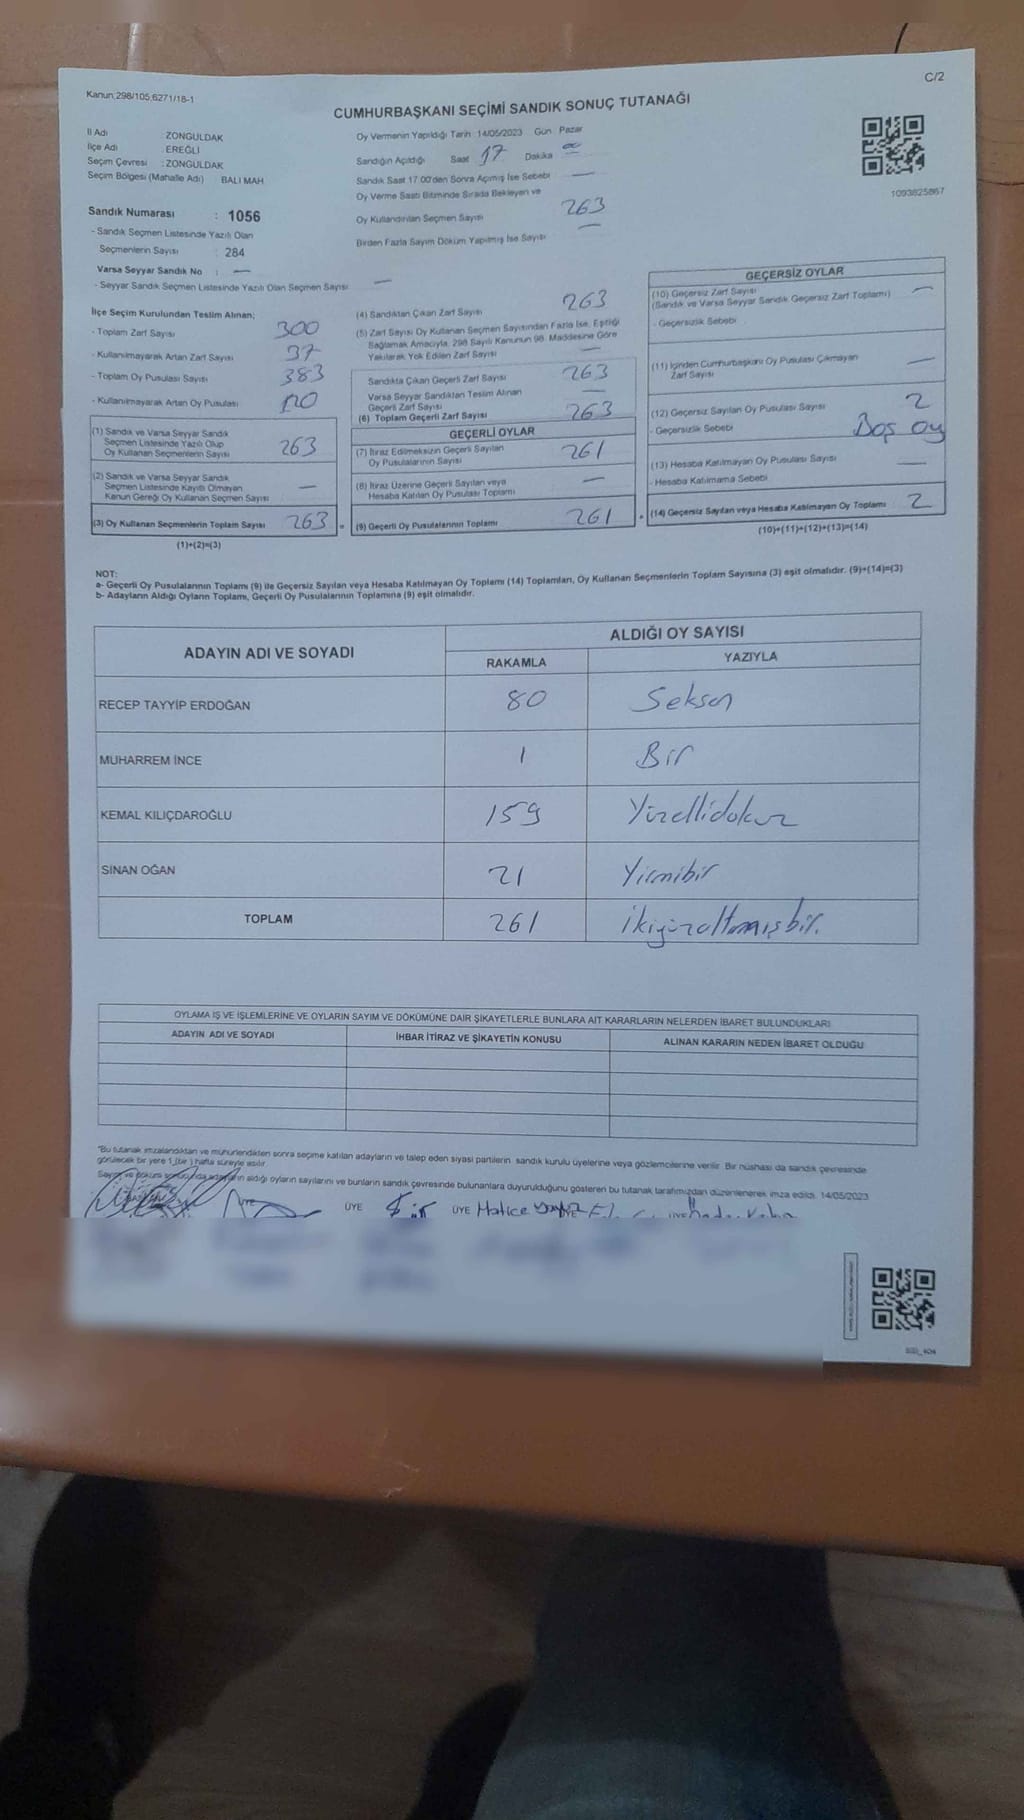 Kanun;298/105,6271/18-1
C/2
CUMHURBAŞKANI SEÇİMİ SANDIK SONUÇ TUTANAĞI
İl Adı : ZONGULDAK
İlçe Adı : EREĞLİ
Seçim Çevresi : ZONGULDAK
Seçim Bölgesi (Mahalle Adı) BALI MAH
Sandık Numarası : 1056
- Sandık Seçmen Listesinde Yazılı Olan
Seçmenlerin Sayısı : 284
Varsa Seyyar Sandık No : —
- Seyyar Sandık Seçmen Listesinde Yazılı Olan Seçmen Sayısı —
Oy Vermenin Yapıldığı Tarih : 14/05/2023 Gün Pazar
Sandığın Açıldığı Saat 17 Dakika 00
Sandık Saat 17.00'den Sonra Açılmış İse Sebebi —
Oy Verme Saati Bitiminde Sırada Bekleyen ve
Oy Kullandırılan Seçmen Sayısı 263
Birden Fazla Sayım Döküm Yapılmış İse Sayısı —
1093825867
İlçe Seçim Kurulundan Teslim Alınan;
- Toplam Zarf Sayısı 300
- Kullanılmayarak Artan Zarf Sayısı 37
- Toplam Oy Pusulası Sayısı 383
- Kullanılmayarak Artan Oy Pusulası 120
(1) Sandık ve Varsa Seyyar Sandık
Seçmen Listesinde Yazılı Olup
Oy Kullanan Seçmenlerin Sayısı 263
(2) Sandık ve Varsa Seyyar Sandık
Seçmen Listesinde Kayıtlı Olmayan
Kanun Gereği Oy Kullanan Seçmen Sayısı —
(3) Oy Kullanan Seçmenlerin Toplam Sayısı 263 =
(1)+(2)=(3)
(4) Sandıktan Çıkan Zarf Sayısı 263
(5) Zarf Sayısı Oy Kullanan Seçmen Sayısından Fazla İse, Eşitliği
Sağlamak Amacıyla, 298 Sayılı Kanunun 98. Maddesine Göre
Yakılarak Yok Edilen Zarf Sayısı —
Sandıkta Çıkan Geçerli Zarf Sayısı 263
Varsa Seyyar Sandıktan Teslim Alınan
Geçerli Zarf Sayısı —
(6) Toplam Geçerli Zarf Sayısı 263
GEÇERLİ OYLAR
(7) İtiraz Edilmeksizin Geçerli Sayılan
Oy Pusulalarının Sayısı 261
(8) İtiraz Üzerine Geçerli Sayılan veya
Hesaba Katılan Oy Pusulası Toplamı —
(9) Geçerli Oy Pusulalarının Toplamı 261 +
GEÇERSİZ OYLAR
(10) Geçersiz Zarf Sayısı —
(Sandık ve Varsa Seyyar Sandık Geçersiz Zarf Toplamı)
- Geçersizlik Sebebi
(11) İçinden Cumhurbaşkanı Oy Pusulası Çıkmayan
Zarf Sayısı —
(12) Geçersiz Sayılan Oy Pusulası Sayısı 2
- Geçersizlik Sebebi Boş oy
(13) Hesaba Katılmayan Oy Pusulası Sayısı —
- Hesaba Katılmama Sebebi
(14) Geçersiz Sayılan veya Hesaba Katılmayan Oy Toplamı 2
(10)+(11)+(12)+(13)=(14)
NOT:
a- Geçerli Oy Pusulalarının Toplamı (9) ile Geçersiz Sayılan veya Hesaba Katılmayan Oy Toplamı (14) Toplamları, Oy Kullanan Seçmenlerin Toplam Sayısına (3) eşit olmalıdır. (9)+(14)=(3)
b- Adayların Aldığı Oyların Toplamı, Geçerli Oy Pusulalarının Toplamına (9) eşit olmalıdır.
ADAYIN ADI VE SOYADI ALDIĞI OY SAYISI
RAKAMLA YAZIYLA
RECEP TAYYİP ERDOĞAN 80 Seksen
MUHARREM İNCE 1 Bir
KEMAL KILIÇDAROĞLU 159 Yüzellidokuz
SİNAN OĞAN 21 Yirmibir
TOPLAM 261 ikiyüzaltmışbir.
OYLAMA İŞ VE İŞLEMLERİNE VE OYLARIN SAYIM VE DÖKÜMÜNE DAİR ŞİKAYETLERLE BUNLARA AİT KARARLARIN NELERDEN İBARET BULUNDUKLARI
ADAYIN ADI VE SOYADI İHBAR İTİRAZ VE ŞİKAYETİN KONUSU ALINAN KARARIN NEDEN İBARET OLDUĞU
*Bu tutanak imzalandıktan ve mühürlendikten sonra seçime katılan adayların ve talep eden siyasi partilerin sandık kurulu üyelerine veya gözlemcilerine verilir. Bir nüshası da sandık çevresinde
görülecek bir yere 1 (bir) hafta süreyle asılır
Sayım ve döküm sonucunda adayların aldığı oyların sayılarını ve bunların sandık çevresinde bulunanlara duyurulduğunu gösteren bu tutanak tarafımızdan düzenlenerek imza edildi. 14/05/2023
ÜYE ÜYE ÜYE Hatice